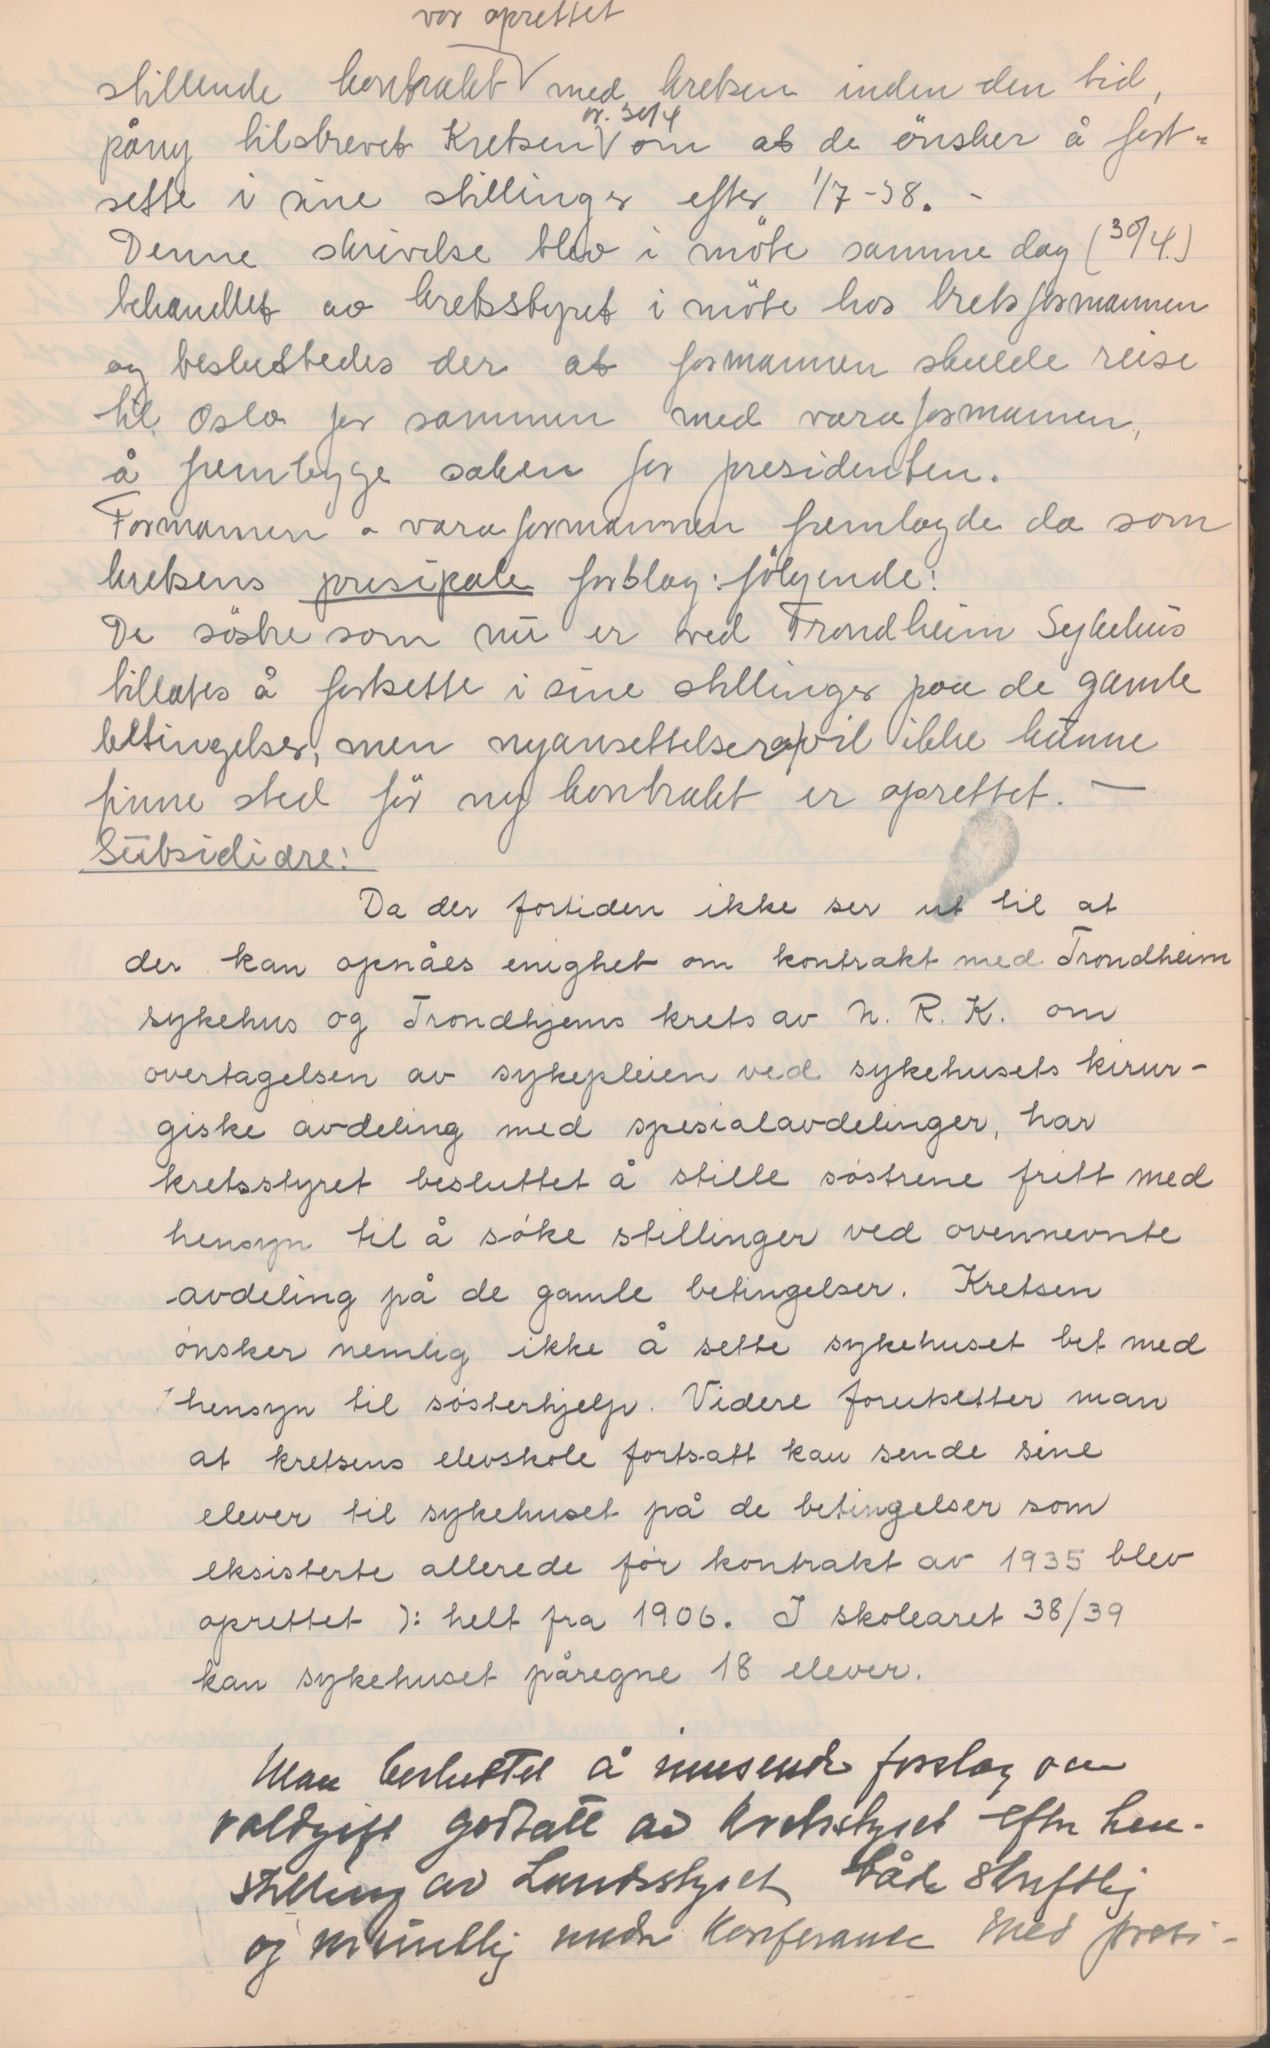 var oprettet
stillende kontrakt med kretsen inden den tid,
påny tilskrevet Kretsen av. 30/4 om at de önsker å fort-
sette i sine stillinger efter 1/7-38. -
Denne skrivelse blev i möte samme dag (30/4.)
behandlet av kretsstyret i möte hos kretsformannen
og besluttedes der at formannen skulde reise
til Oslo for sammen med varaformannen,
å fremlegge saken for presidenten.
Formannen o varaformannen fremlagde da som
kretsens presipale forslag: fölgende:
De söstre som nu er ved Trondheim Sykehus
tillates å fortsette i sine stillinger paa de gamle
betingelser, men nyansettelser vil ikke kunne
finne sted för ny kontrakt er oprettet. —
Subsidiære:
Da der fortiden ikke ser ut til at
der kan opnåes enighet om kontrakt med Trondheim
sykehus og Trondhjems krets av N. R. K. om
overtagelsen av sykepleien ved sykehusets kirur-
giske avdeling med spesialavdelinger, har
kretsstyret besluttet å stille søstrene fritt med
hensyn til å søke stillinger ved ovennevnte
avdeling på de gamle betingelser. Kretsen
ønsker nemlig ikke å sette sykehuset bet med
hensyn til søsterhjelp. Videre forutsetter man
at kretsens elevskole fortsatt kan sende sine
elever til sykehuset på de betingelser som
eksisterte allerede før kontrakt av 1935 blev
oprettet ): helt fra 1906. I skoleåret 38/39
kan sykehuset påregne 18 elever.
Man besluttet å innsende forslag om
voldgift godtatt av Kretsstyret efter hen-
stilling av Landsstyret både skriftlig
og muntlig under Konferanse med presi-